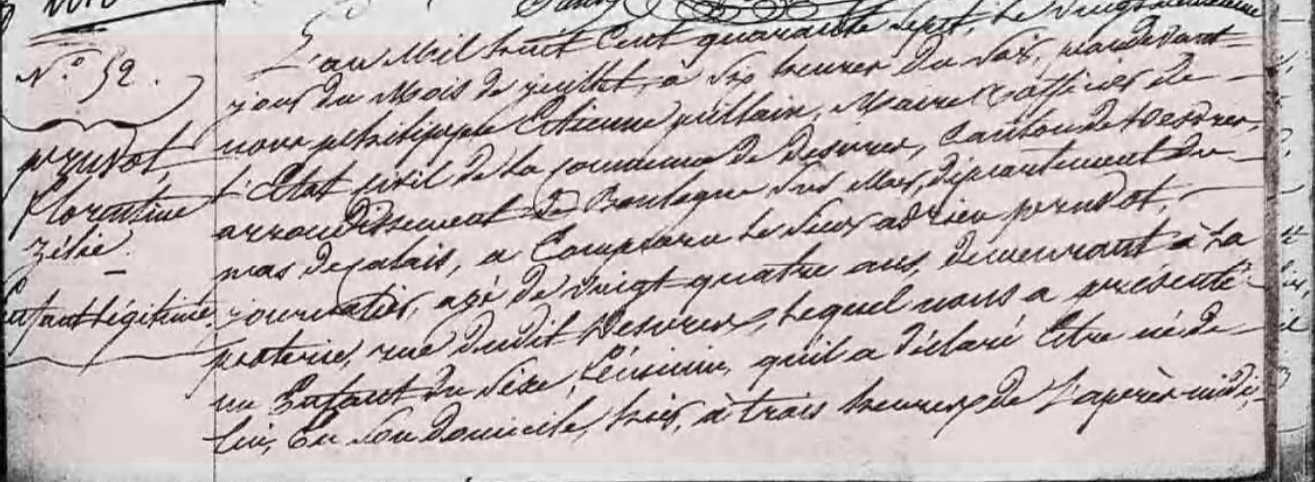 N.° 52.
prudot,
florentine
zélie.
Enfant légitime.
L'an Mil huit Cent quarante Sept, le vingt
jour du Mois de juillet, à Six heures du Soir, pardevant
nous philippe Etienne Maire & officier de
l'Etat civil de la commune de Desvres, Canton de Desvres,
arrondissement de Boulogne Sur Mer, département du
pas de calais, a Comparu le Sieur adrien prudot,
journalier, agé de vingt quatre ans, demeurant à la
poterie, rue dudit Desvres, lequel nous a présenté
un Enfant du Sexe, féminin, qu'il a déclaré Etre né de
lui, En Son domicile, hier, à trois heures de L'après-midi,